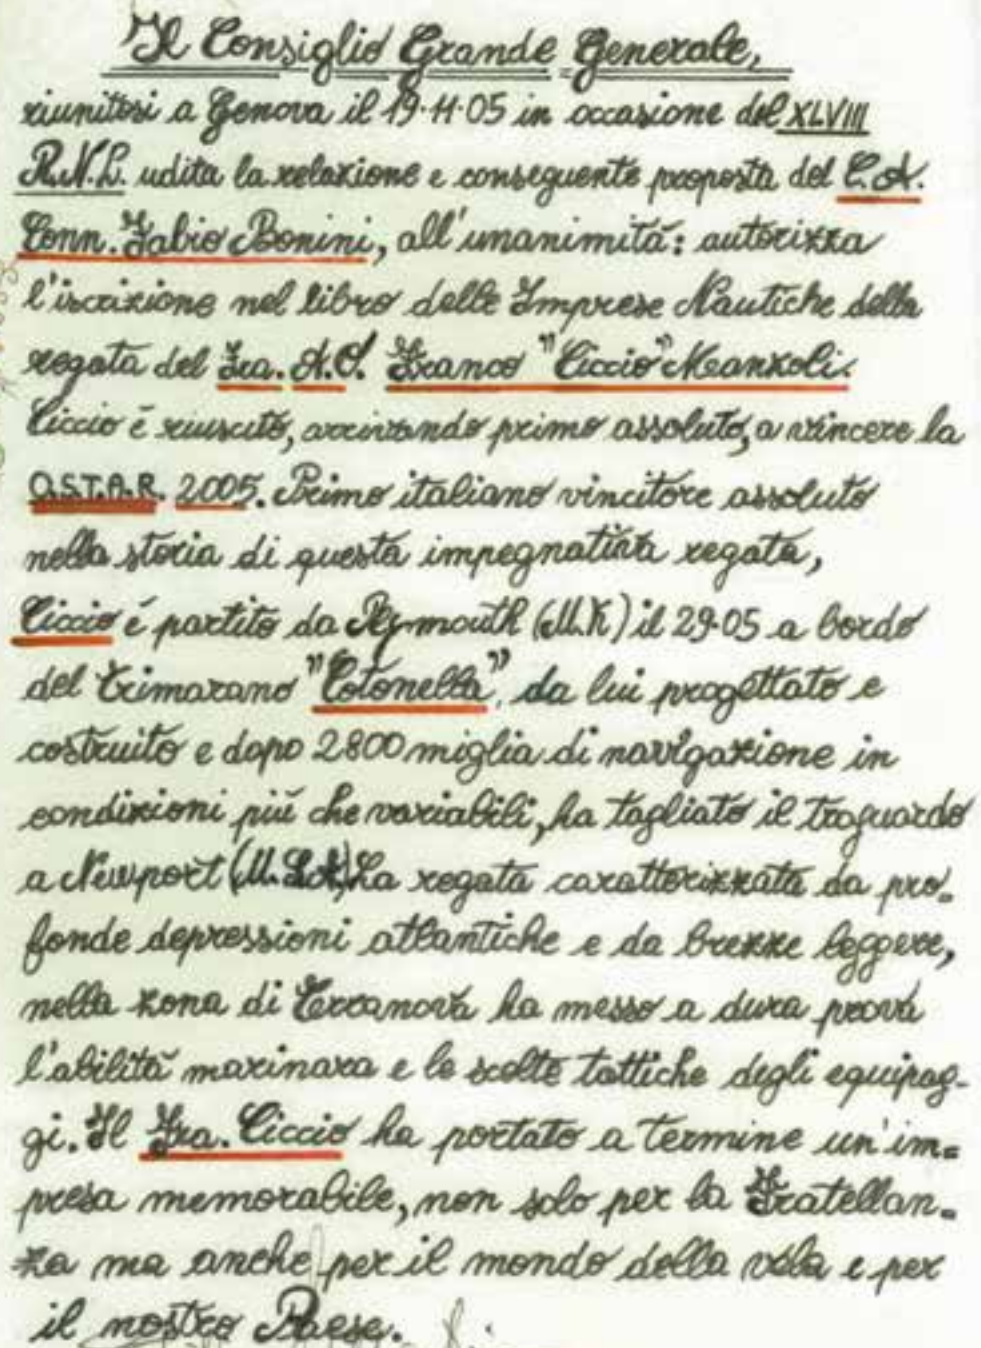 Il Consiglio Grande Generale,
riunitosi a Genova il 19·11·05 in occasione del XLVIII
R.N.L. udita la relazione e conseguente proposta del C.A.
Conn. Fabio Bonini, all'unanimità: autorizza
l'iscrizione nel libro delle Imprese Nautiche della
regata del Fra. A.S. Franco "Ciccio" Manzoli.
Ciccio è riuscito, arrivando primo assoluto, a vincere la
O.S.T.A.R. 2005. Primo italiano vincitore assoluto
nella storia di questa impegnativa regata,
Ciccio è partito da Plymouth (U.K) il 29·05 a bordo
del trimarano "Cotonella", da lui progettato e
costruito e dopo 2800 miglia di navigazione in
condizioni più che variabili, ha tagliato il traguardo
a Newport (U.S.A) La regata caratterizzata da pro-
fonde depressioni atlantiche e da brezze leggere,
nella zona di Terranova ha messo a dura prova
l'abilità marinara e le scelte tattiche degli equipag-
gi. Il Fra. Ciccio ha portato a termine un'im=
presa memorabile, non solo per la Fratellan=
za ma anche per il mondo della vela e per
il nostro Paese.